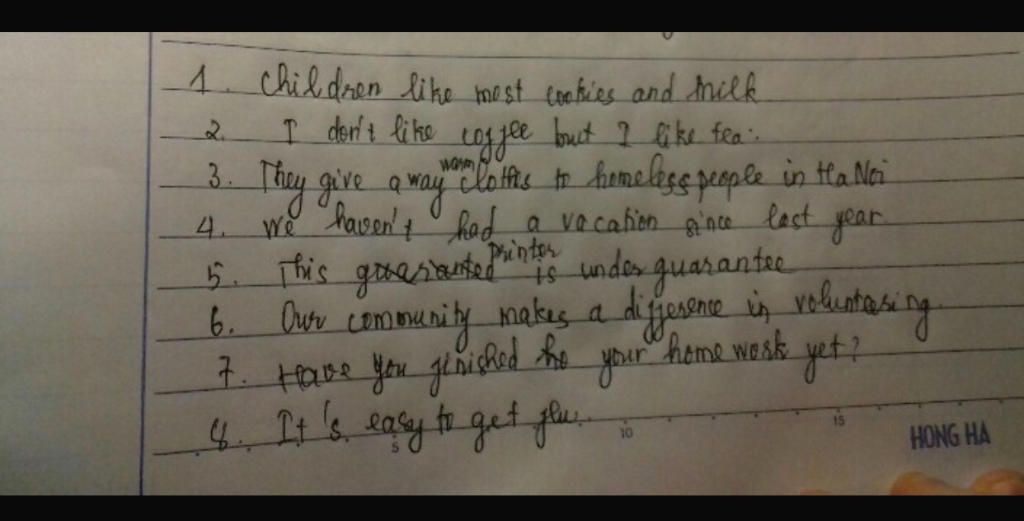 1. Children like most cookies and milk
2. I don't like coffee but I like tea.
3. They give away warm clothes to homeless people in Ha Noi
4. We haven't had a vacation since last year
5. This printer is under guarantee
6. Our community makes a difference in voluntering.
7. Have you finished your home work yet?
8. It's easy to get flu.
5 10 15 HONG HA